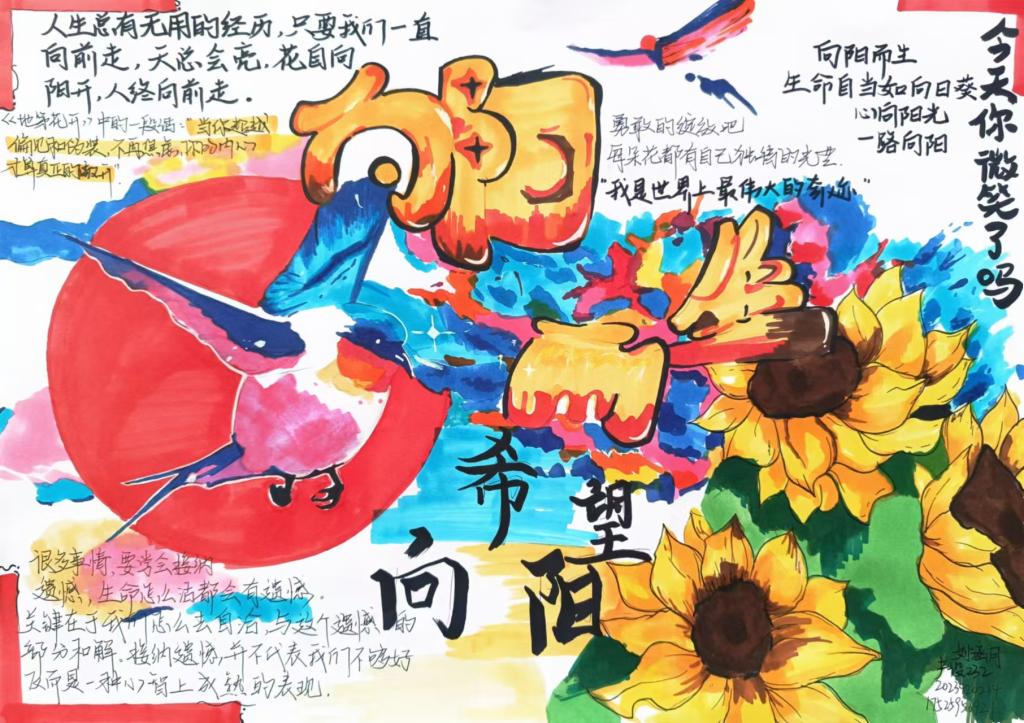 人生总有无用的经历，只要我们一直
向前走，天总会亮。花自向
阳开，人终向前走。
《地车花开》中的一段话："当你超越
偏见和伪装，不再焦虑，你的内心
才是真正的
向阳而生
勇敢的绽放吧
每朵花都有自己独特的光芒.
"我是世界上最伟大的奇迹."
向阳而生
生命自当如向日葵
心向阳光
一路向阳
今天你微笑了吗
希望
向阳
很多事情，要学会接纳
遗憾，生命怎么活都会有遗憾。
关键在于我们怎么去自洽，与这个遗憾的
部分和解。接纳遗憾，并不代表我们不够好
反而是一种心智上成熟的表现.